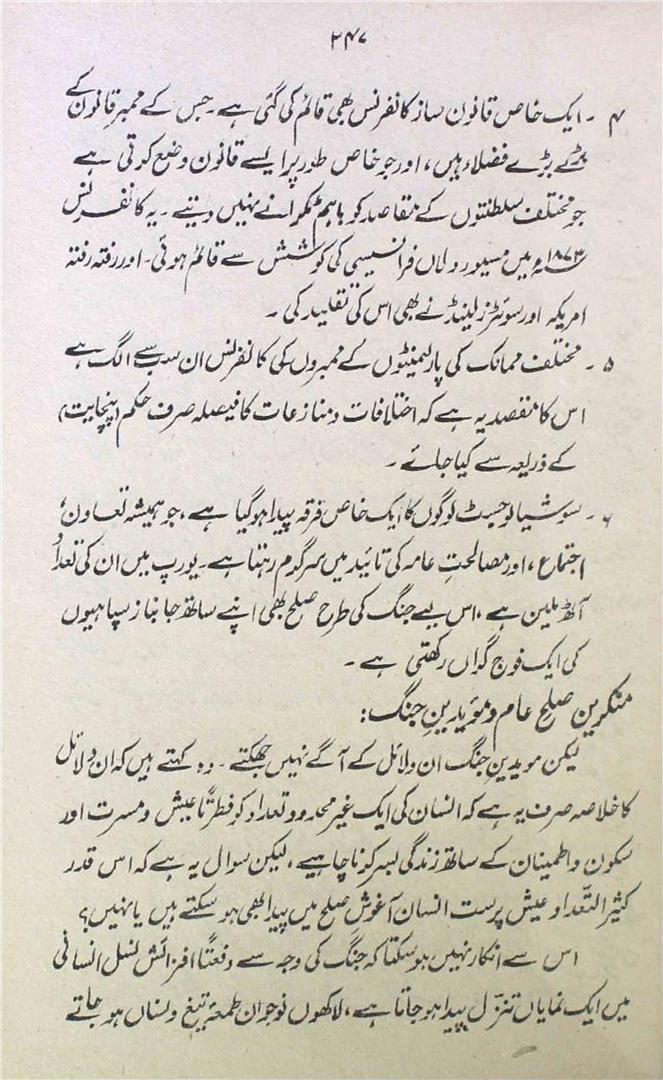 ۳۴۷
۴ - ایک خاص قانون ساز کانفرنس بھی قائم کی گئی ہے۔ جس کے ممبر قانون کے
بڑے بڑے فضلاء ہیں، اور جو خاص طور پر ایسے قانون وضع کرتی ہے
جو مختلف سلطنتوں کے مقاصد کو باہم ٹکرانے نہیں دیتے۔ یہ کانفرنس
۱۸۷۳ء میں مسیور ولاں فرانسیسی کی کوشش سے قائم ہوئی۔ اور رفتہ رفتہ
امریکہ اور سوئٹزرلینڈ نے بھی اس کی تقلید کی ۔
۵ - مختلف ممالک کی پارلیمنٹوں کے ممبروں کی کانفرنس ان سب سے الگ ہے
اس کا مقصد یہ ہے کہ اختلافات و منازعات کا فیصلہ صرف حکم (پنچایت)
کے ذریعہ سے کیا جائے ۔
۶ - سوشیالوجسٹ لوگوں کا ایک خاص فرقہ پیدا ہو گیا ہے، جو ہمیشہ تعاون،
اجتماع، اور مصالحتِ عامہ کی تائید میں سرگرم رہتا ہے۔ یورپ میں ان کی تعداد
آٹھ ملین ہے، اس لیے جنگ کی طرح صلح بھی اپنے ساتھ جانباز سپاہیوں
کی ایک فوج گراں رکھتی ہے ۔
منکرین صلح عام و مؤیدینِ جنگ :
لیکن مویدینِ جنگ ان دلائل کے آگے نہیں جھکتے ۔ وہ کہتے ہیں کہ ان دلائل
کا خلاصہ صرف یہ ہے کہ انسان کی ایک غیر محدود تعداد کو فطرتاً عیش و مسرت اور
سکون و اطمینان کے ساتھ زندگی بسر کرنا چاہیے، لیکن سوال یہ ہے کہ اس قدر
کثیر التعداد عیش پرست انسان آغوشِ صلح میں پیدا بھی ہو سکتے ہیں یا نہیں؟
اس سے انکار نہیں ہو سکتا کہ جنگ کی وجہ سے دفعتاً افزائش نسل انسانی
میں ایک نمایاں تنزّل پیدا ہو جاتا ہے، لاکھوں نوجوان طعمۂ تیغ و سناں ہو جاتے